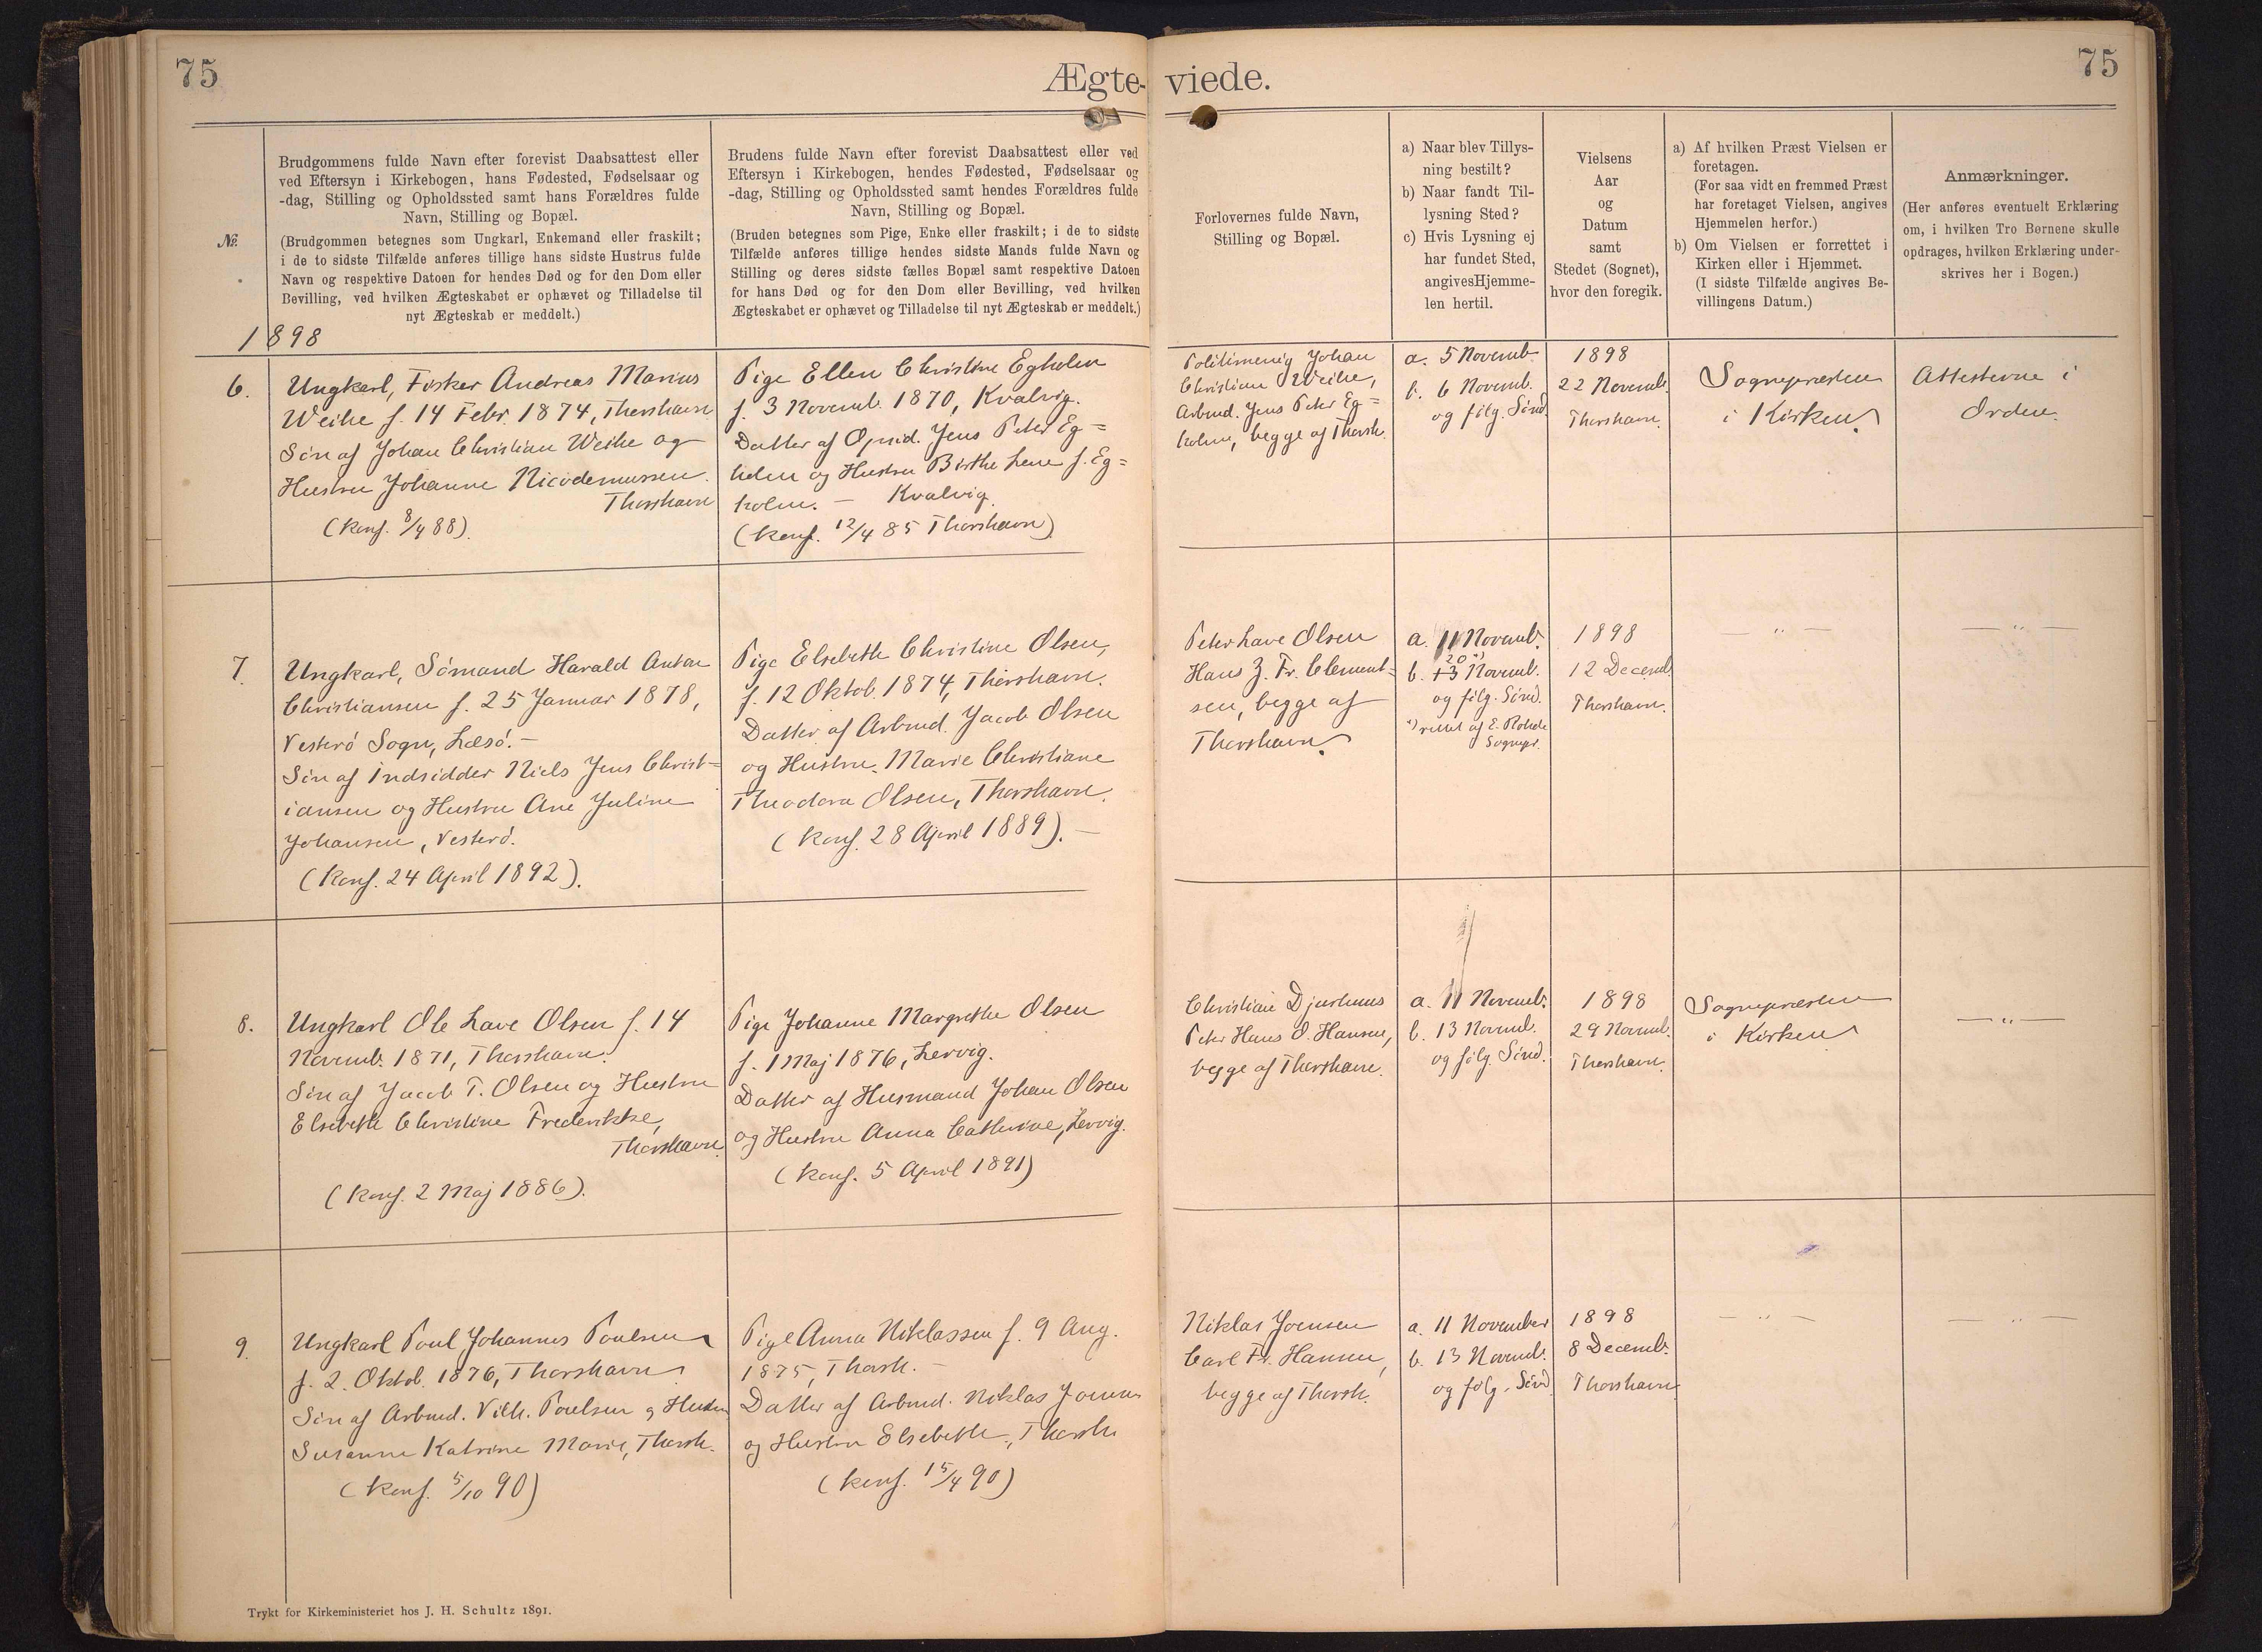 75
Ægte-
viede.
75
Nº
Brudgommens fulde Navn efter forevist Daabsattest eller
ved Eftersyn i Kirkebogen, hans Fødested, Fødselsaar og
-dag, Stilling og Opholdssted samt hans Forældres fulde
Navn, Stilling og Bopæl.
(Brudgommen betegnes som Ungkarl, Enkemand eller fraskilt;
i de to sidste Tilfælde anføres tillige hans sidste Hustrus fulde
Navn og respektive Datoen for hendes Død og for den Dom eller
Bevilling, ved hvilken Ægteskabet er ophævet og Tilladelse til
nyt Ægteskab er meddelt.)
Brudens fulde Navn efter forevist Daabsattest eller ved
Eftersyn i Kirkebogen, hendes Fødested, Fødselsaar og
-dag, Stilling og Opholdssted samt hendes Forældres fulde
Navn, Stilling og Bopæl.
(Bruden betegnes som Pige, Enke eller fraskilt; i de to sidste
Tilfælde anføres tillige hendes sidste Mands fulde Navn og
Stilling og deres sidste fælles Bopæl samt respektive Datoen
for hans Død og for den Dom eller Bevilling, ved hvilken
Ægteskabet er ophævet og Tilladelse til nyt Ægteskab er meddelt.)
Forlovernes fulde Navn,
Stilling og Bopæl.
a) Naar blev Tillys-
ning bestilt?
b) Naar fandt Til-
lysning Sted?
c) Hvis Lysning ej
har fundet Sted,
angives Hjemme-
len hertil.
Vielsens
Aar
og
Datum
samt
Stedet (Sognet),
hvor den foregik.
a) Af hvilken Præst Vielsen er
foretagen.
(For saa vidt en fremmed Præst
har foretaget Vielsen, angives
Hjemmelen herfor.)
b) Om Vielsen er forrettet i
Kirken eller i Hjemmet.
(I sidste Tilfælde angives Be-
villingens Datum.)
Anmærkninger.
(Her anføres eventuelt Erklæring
om, i hvilken Tro Børnene skulle
opdrages, hvilken Erklæring under-
skrives her i Bogen.)
1898
6.
Ungkarl, Fisker Andreas Marius
Weihe f. 14 Febr. 1874, Thorshavn
Søn af Johan Christian Weihe og
Hustru Johanne Nicodemussen.
Thorshavn
(Konf. 8/4 88).
Pige Ellen Christine Egholm
f. 3 Novemb. 1870, Kvalvig.
Datter af Opsid. Jens Peter Eg=
holm og Hustru Birthe Lene f. Eg=
holm. – Kvalvig.
(Konf. 12/4 85 Thorshavn)
Politimenig Johan
Christian Weihe,
Arbmd. Jens Peter Eg=
holm, begge af Thorsh.
a. 5 Novemb.
b. 6 Novemb.
og følg. Sønd.
1898
22 Novemb.
Thorshavn.
Sognepræsten
i Kirken.
Attesterne i
Orden.
7.
Ungkarl, Sømand Harald Anton
Christiansen f. 25 Januar 1878,
Vesterø Sogn, Læsø. –
Søn af Indsidder Niels Jens Christ=
iansen og Hustru Ane Juline
Johansen, Vesterø.
(Konf. 24 April 1892).
Pige Elsebeth Christine Olsen,
f. 12 Oktob. 1874, Thorshavn.
Datter af Arbmd. Jacob Olsen
og Hustru Marie Christiane
Theodora Olsen, Thorshavn.
(Konf. 28 April 1889). –
Peter Lave Olsen
Hans J. Fr. Clement=
sen, begge af
Thorshavn.
a. 11 Novemb.
20 *)
b. 13 Novemb.
og følg. Sønd.
*) rettet af E. Rohde
Sognepr.
1898
12 Decemb.
Thorshavn.
— „ —
— „ —
8.
Ungkarl Ole Lave Olsen f. 14
Novemb. 1871, Thorshavn.
Søn af Jacob T. Olsen og Hustru
Elsebeth Christine Frederikke,
Thorshavn.
(Konf. 2 Maj 1886).
Pige Johanne Margrethe Olsen
f. 1 Maj 1876, Lervig.
Datter af Husmand Johan Olsen
og Hustru Anna Cathrine, Lervig.
(Konf. 5 April 1891)
Christian Djurhuus
Peter Hans O. Hansen,
begge af Thorshavn.
a. 11 Novemb.
b. 13 Novemb.
og følg. Sønd.
1898
29 Novemb.
Thorshavn.
Sognepræsten
i Kirken
— „ —
9.
Ungkarl Poul Johannes Poulsen
f. 2. Oktob. 1876, Thorshavn
Søn af Arbmd. Vilh. Poulsen og Hustru
Susanne Katrine Marie, Thorsh.
(Konf. 5/10 90)
Pige Anna Niklassen f. 9 Aug.
1875, Thorsh. –
Datter af Arbmd. Niklas Joensen
og Hustru Elsebeth, Thorsh.
(Konf. 15/4 90)
Niklas Joensen
Carl Fr. Hansen,
begge af Thorsh.
a. 11 November
b. 13 Novemb.
og følg. Sønd.
1898
8 Decemb.
Thorshavn
— „ —
— „ —
Trykt for Kirkeministeriet hos J. H. Schultz 1891.